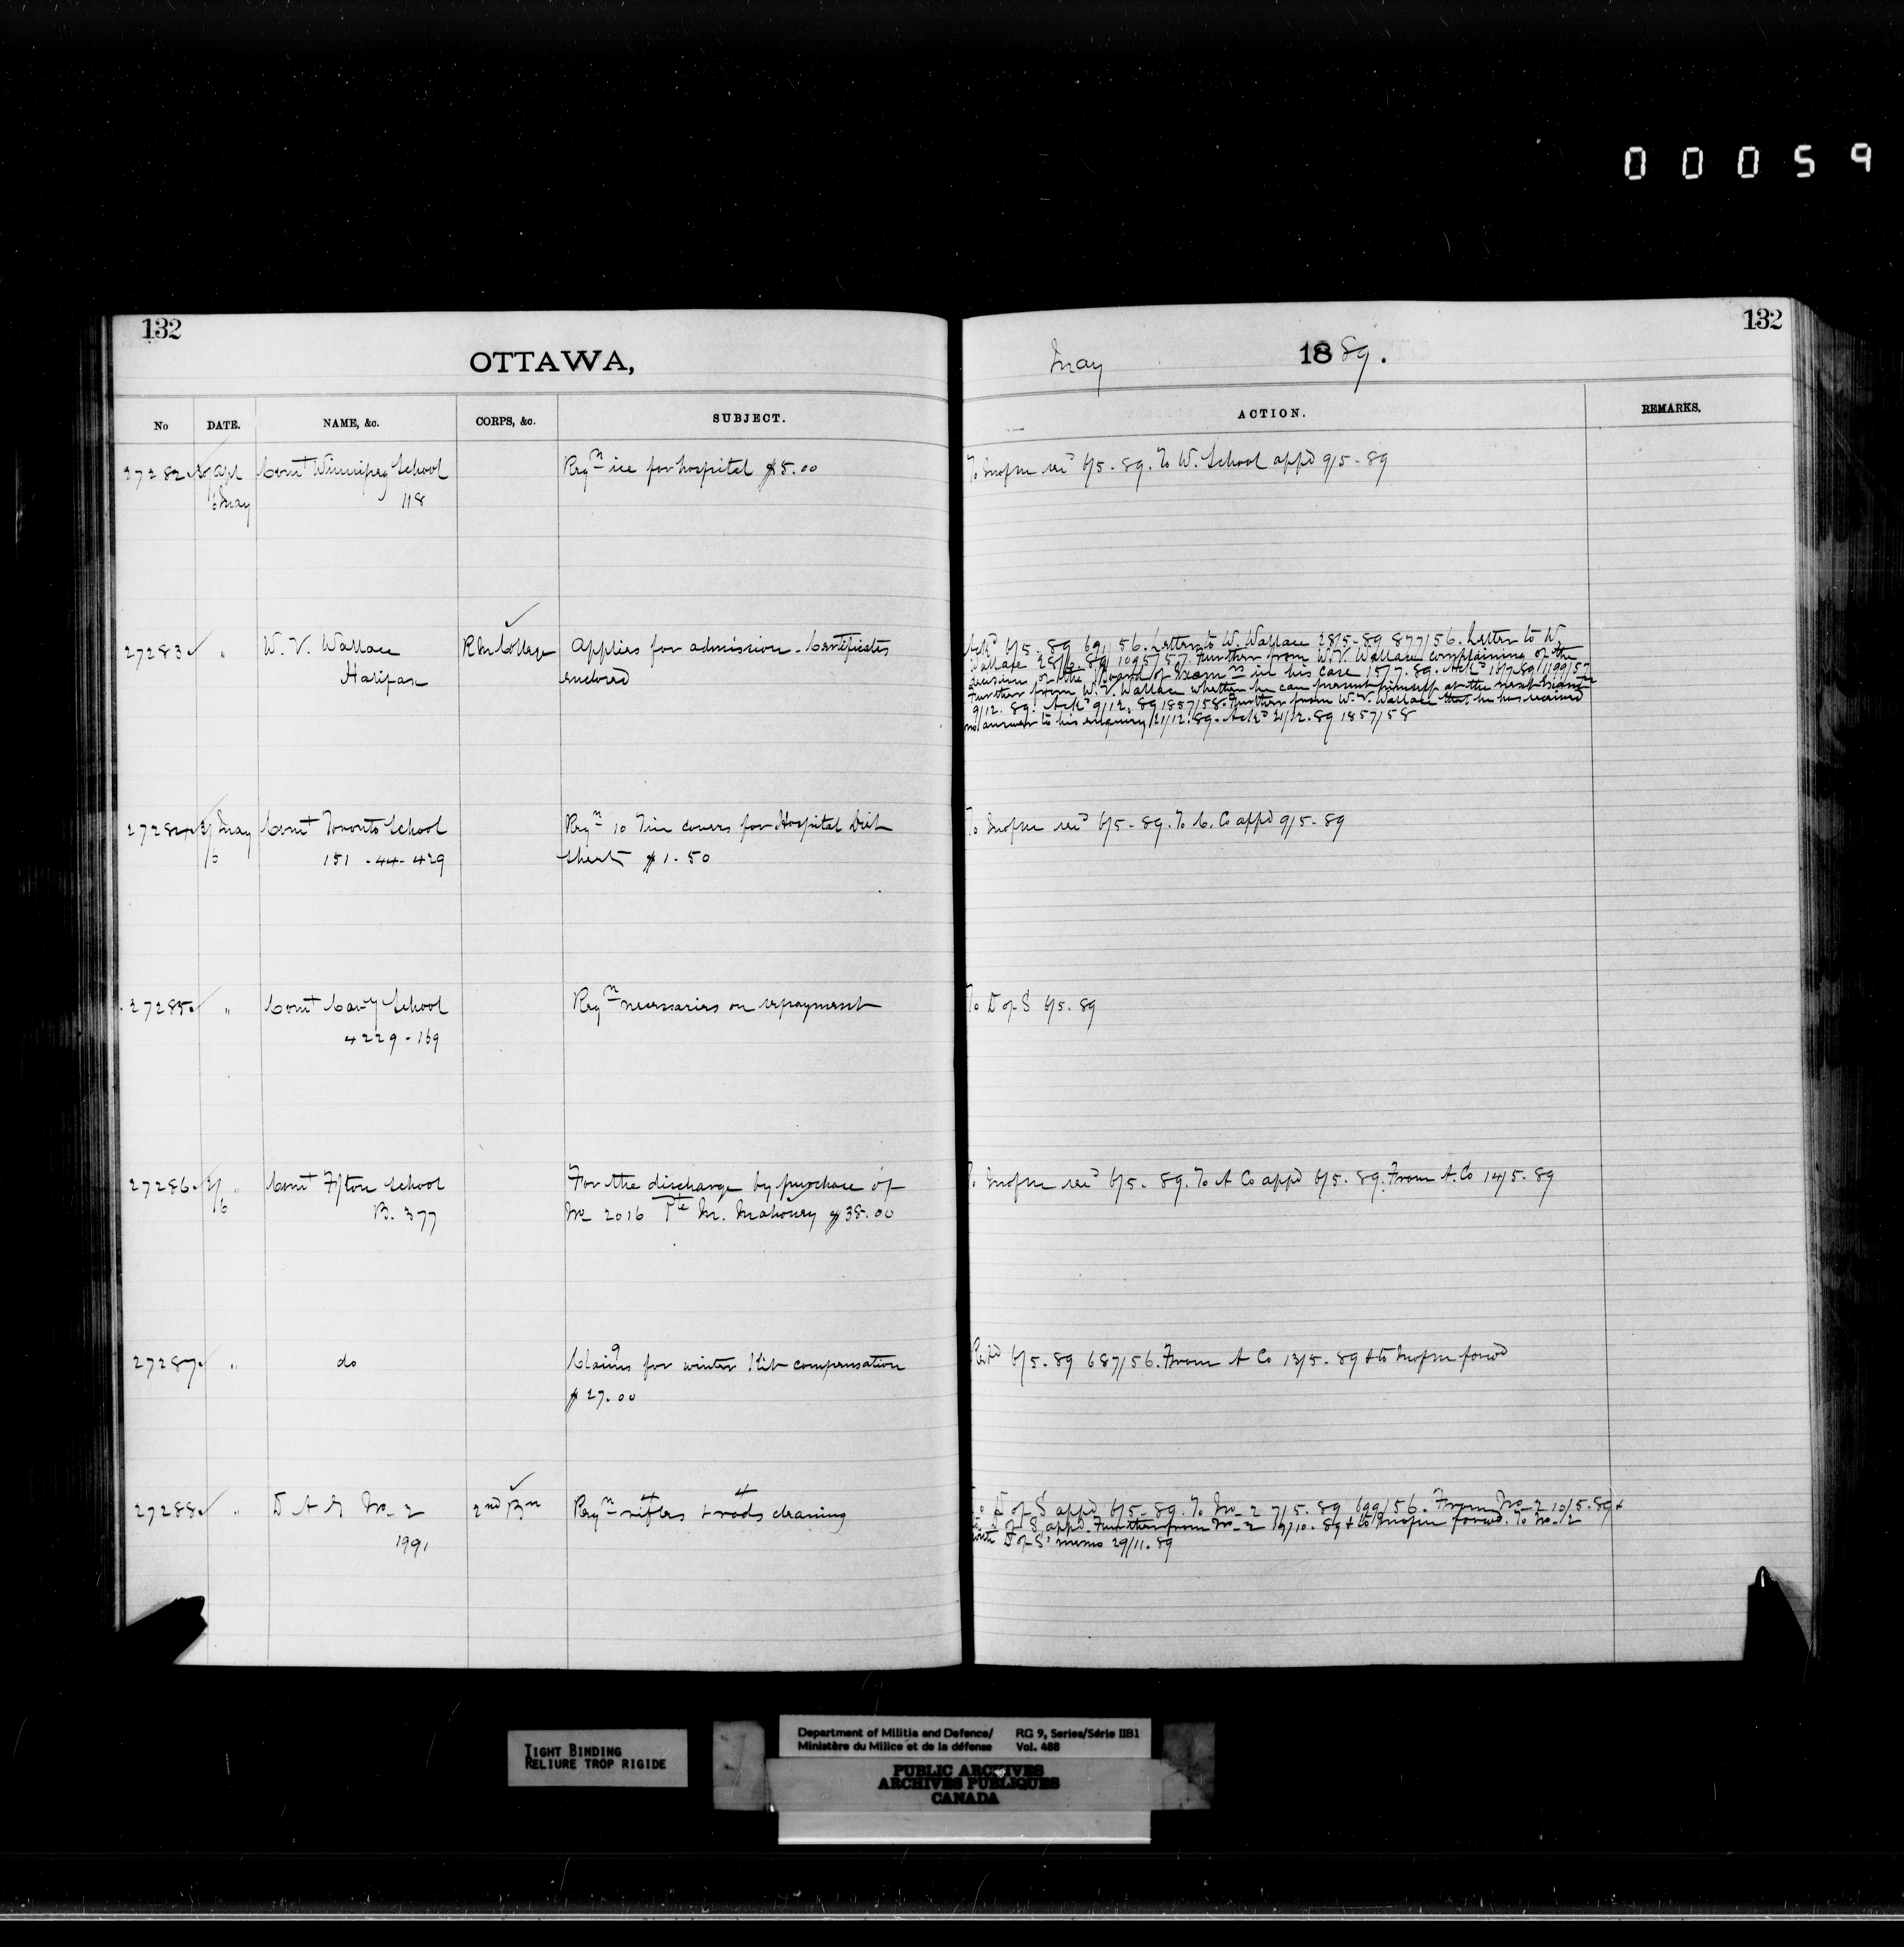 00059
132
132
OTTAWA,
May 1889.
No DATE. NAME, &c. CORPS, &c. SUBJECT. ACTION. REMARKS.
27282 Apl Comt Winnipeg School Reqn ice for hospital $5.00 To Inspr 6/5-89. To W. School appd 9/5-89
6 May 118
27283 " W. V. Wallace R M College Applies for admission - Certificates Ackd 6/5-89 691/56. Letter to W. Wallace 28/5-89 877/56. Letter to W.
Halifax enclosed Wallace 28/6.89 1095/57. Further from W. V. Wallace complaining of the
decision of the Board of Examrs in his case 15/7.89. Ackd 1199/57
Further from W. V. Wallace whether he can present himself at the next Examn
9/12.89. Ackd 9/12.89 1857/58. Further from W. V. Wallace that he has received
no answer to his enquiry 21/12.89. Ackd 21/12.89 1857/58
27284 May Comt Toronto School Reqn 10 Tin covers for Hospital Diet To 6/5-89. To C. Co appd 9/5-89
6 151-44-429 Sheets $1.50
27285 " Comt Cavy School Reqn necessaries on repayment To D of S 6/5.89
4229-169
27286 " Comt F/ton School For the discharge by purchase of 6/5-89. To A Co appd 6/5-89. From A. Co 14/5-89
6 B. 377 No 2016 Pte M. Mahoney $38.00
27287 " do Claims for winter Kit compensation Repd 6/5-89 687/56. From A Co 13/5-89 & to forwd
$27.00
27288 " D A G No 2 2nd Bn Reqn 4 rifles 4 rods cleaning To D of S appd 6/5-89. To No 2 7/5.89 699/56. From No 2 10/5-89 &
1991 to D of S appd. Further from No 2 19/10-89 & to forwd. To No 2
with D of S' memo 29/11.89
TIGHT BINDING
RELIURE TROP RIGIDE
Department of Militia and Defence/ RG 9, Series/Série IIB1
Ministère du Milice et de la défense Vol. 488
PUBLIC ARCHIVES
ARCHIVES PUBLIQUES
CANADA